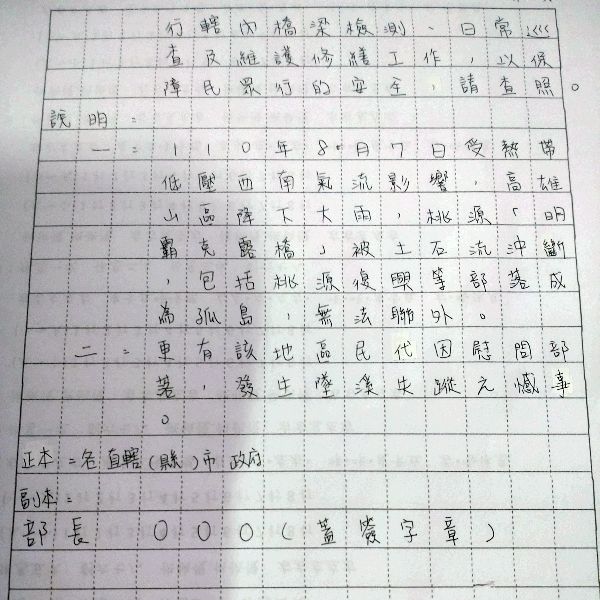 行轄內橋梁檢測、日常巡
查及維護修繕工作，以保
障民眾行的安全，請查照。
說明：
一：110年8月7日受熱帶
低壓西南氣流影響，高雄
山區降下大雨，桃源「明
霸克露橋」被土石流沖斷
，包括桃源復興等部落成
為孤島，無法聯外。
二：更有該地區民代因慰問部
落，發生墜溪失蹤之憾事
。
正本：各直轄(縣)市政府
副本：
部長 〇〇〇(蓋簽字章)